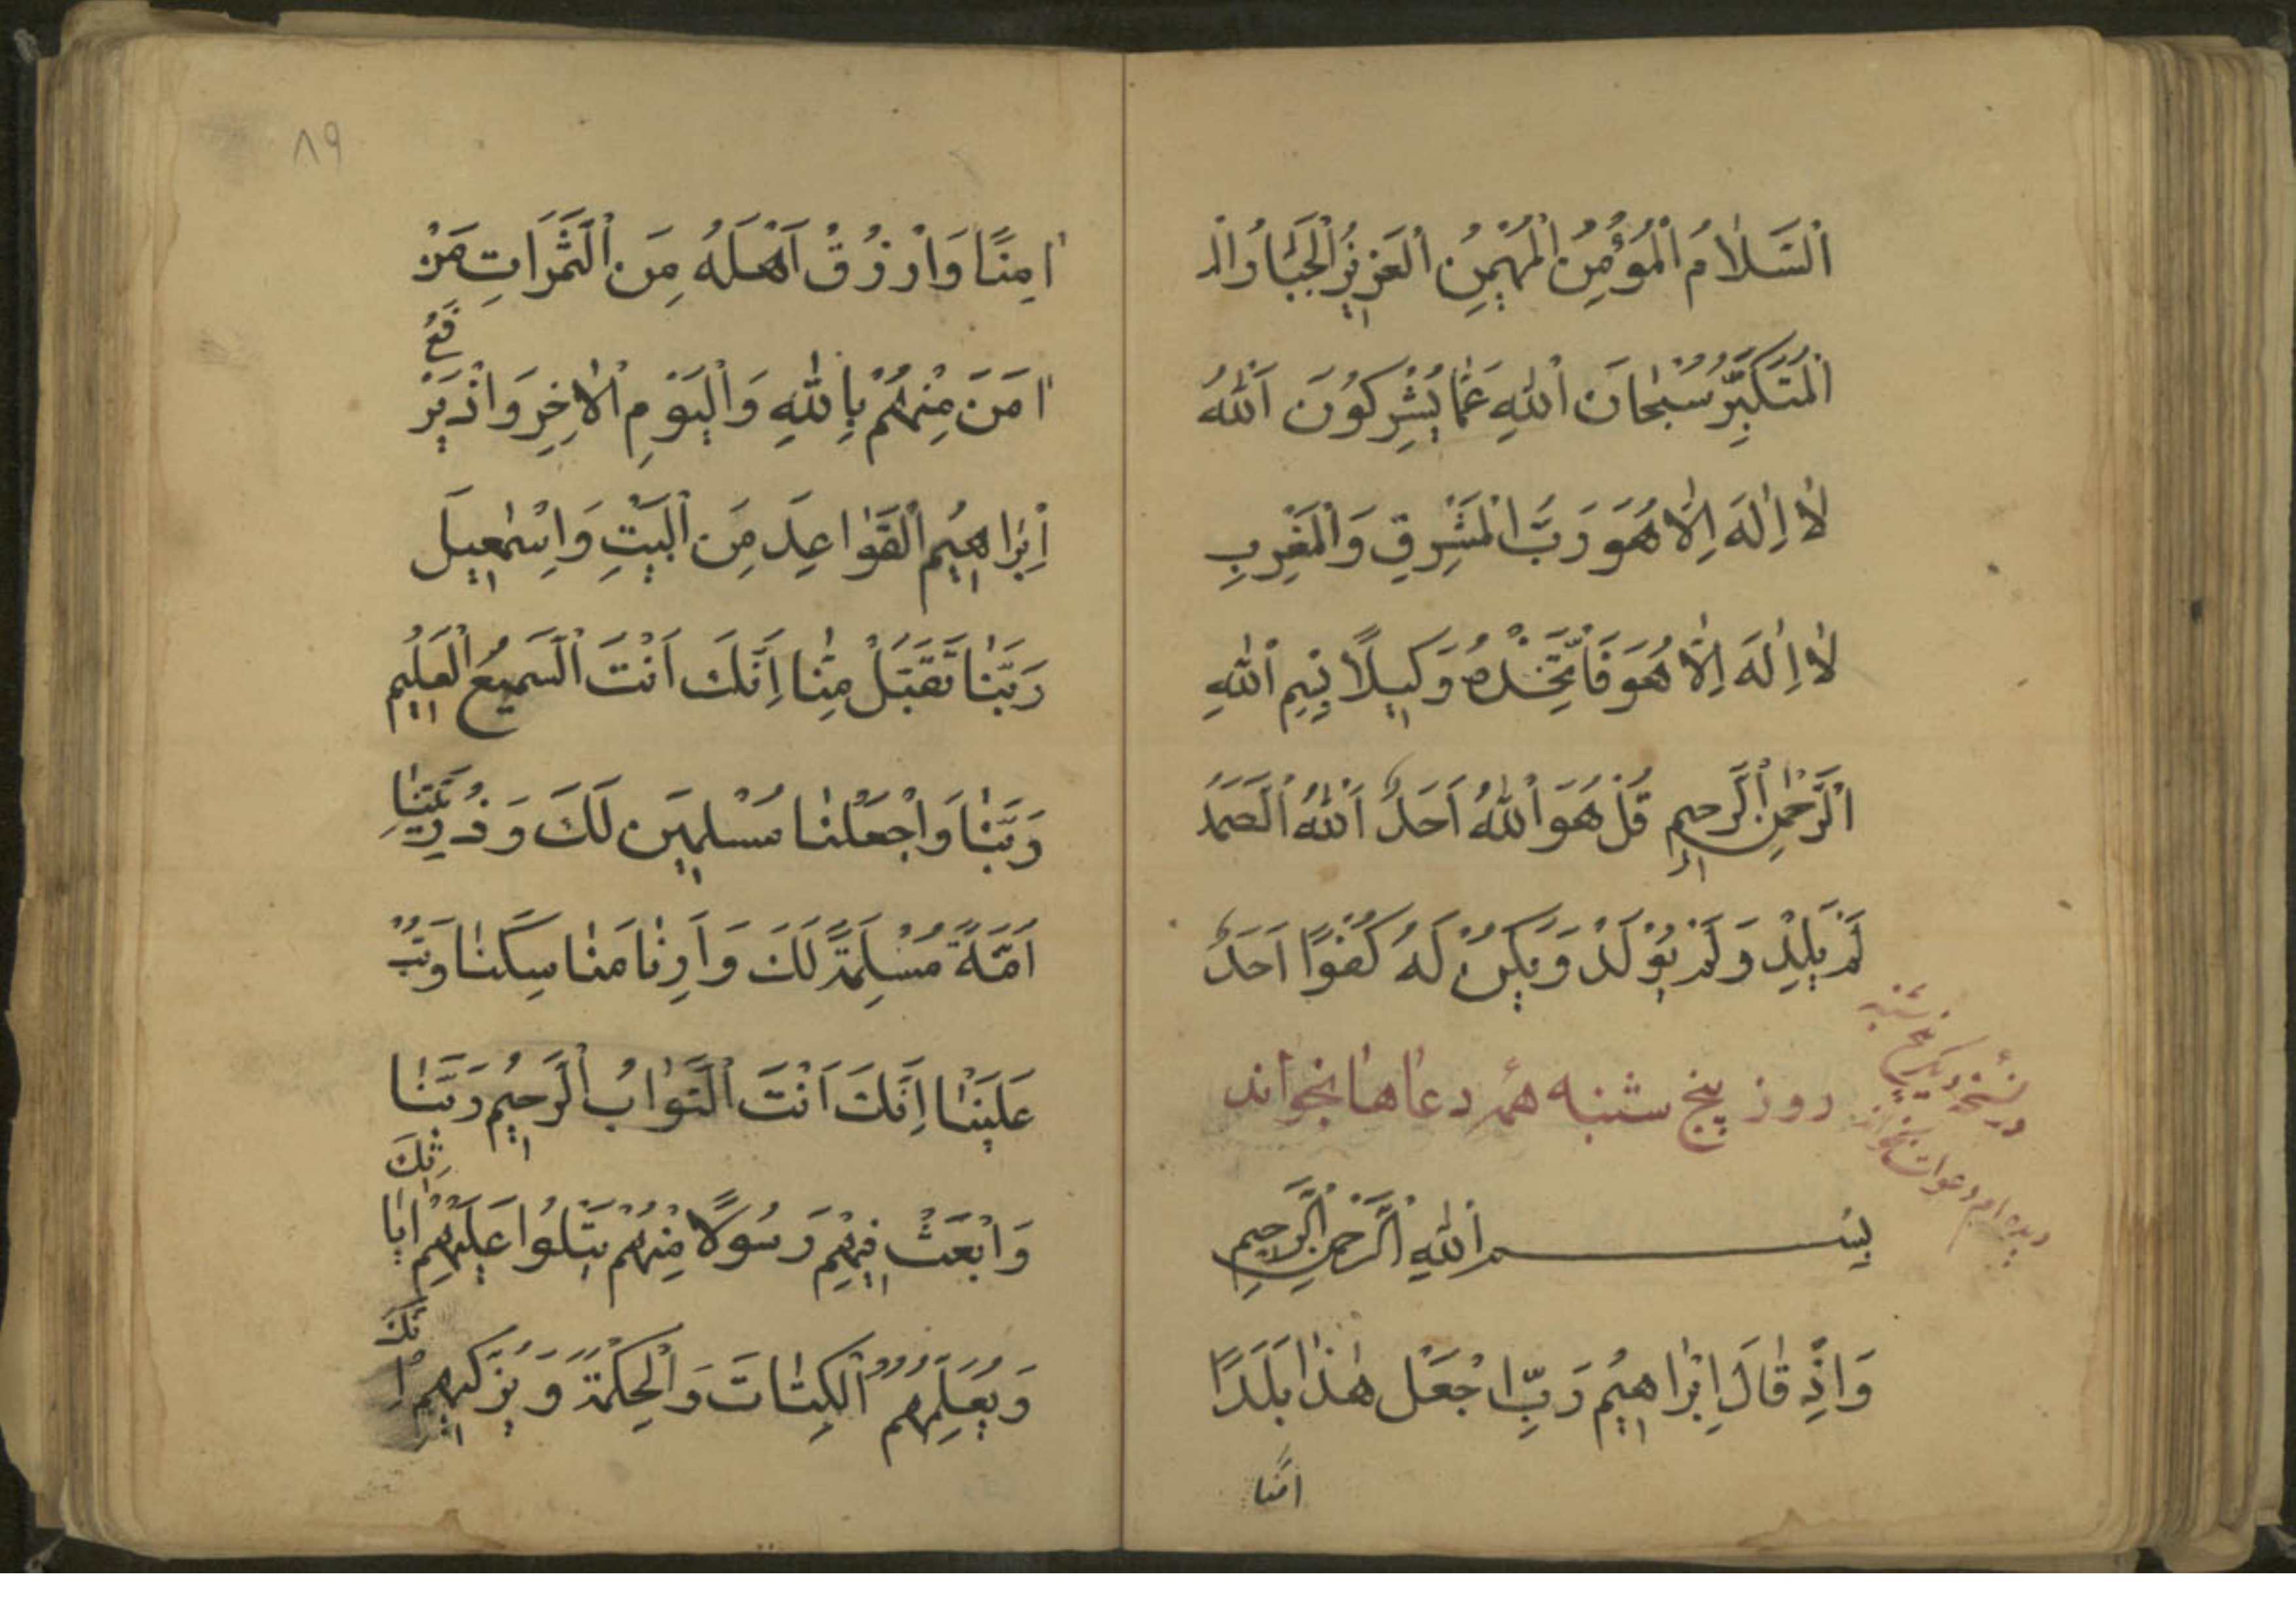 اَلسَّلَامُ الْمُؤْمِنُ الْمُهَيْمِنُ الْعَزِيزُ الْجَبَّارُ الْ
الْمُتَكَبِّرُ سُبْحَانَ اللهِ عَمَّا يُشْرِكُونَ اَللهُ
لَا اِلٰهَ اِلَّا هُوَ رَبُّ الْمَشْرِقِ وَالْمَغْرِبِ
لَا اِلٰهَ اِلَّا هُوَ فَاتَّخِذْهُ وَكِيلًا بِسْمِ اللهِ
الرَّحْمٰنِ الرَّحِيمِ قُلْ هُوَ اللهُ اَحَدٌ اَللهُ الصَّمَدُ
لَمْ يَلِدْ وَلَمْ يُوْلَدْ وَيَكُنْ لَهُ كُفُوًا اَحَدٌ
روز پنج شنبه همر دعاها بخواند
در نسخهٔ دیگر پنج شنبه
دیده‌ام دعوات بخواند
بِسْمِ اللهِ الرَّحْمٰنِ الرَّحِيمِ
وَاِذْ قَالَ اِبْرَاهِيمُ رَبِّ اجْعَلْ هٰذَا بَلَدًا
امنا
٨٩
اٰمِنًا وَارْزُقْ اَهْلَهُ مِنَ الثَّمَرَاتِ مَنْ
اٰمَنَ مِنْهُمْ بِاللهِ وَالْيَوْمِ الْاٰخِرِ وَاِذْ يَرْ
فَعُ
اِبْرَاهِيمُ الْقَوَاعِدَ مِنَ الْبَيْتِ وَاِسْمٰعِيلَ
رَبَّنَا تَقَبَّلْ مِنَّا اِنَّكَ اَنْتَ السَّمِيعُ الْعَلِيمُ
رَبَّنَا وَاجْعَلْنَا مُسْلِمَيْنِ لَكَ وَذُرِّيَّتِنَا
اُمَّةً مُسْلِمَةً لَكَ وَاَرِنَا مَنَاسِكَنَا وَتُبْ
عَلَيْنَا اِنَّكَ اَنْتَ التَّوَّابُ الرَّحِيمُ رَبَّنَا
وَابْعَثْ فِيهِمْ رَسُولًا مِنْهُمْ يَتْلُوا عَلَيْهِمْ اٰيَا
تِكَ
وَيُعَلِّمُهُمُ الْكِتَابَ وَالْحِكْمَةَ وَيُزَكِّيهِمْ اِ
نَّكَ